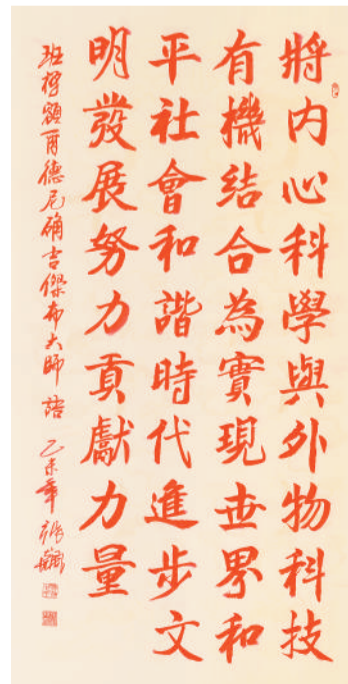 將内心科學與外物科技
有機結合為實現世界和
平社會和諧時代進步文
明發展努力貢獻力量
班禪額爾德尼確吉傑布大師語 乙未年